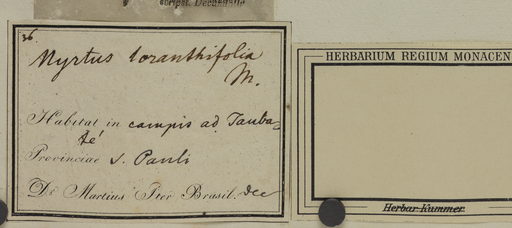 36.
Myrtus loranthifolia
M.
Habitat in campis ad Tauba-
té
Provinciae S. Pauli
Dr. Martius Iter Brasil. Dec
HERBARIUM REGIUM MONACEN
Herbar. Kummer.